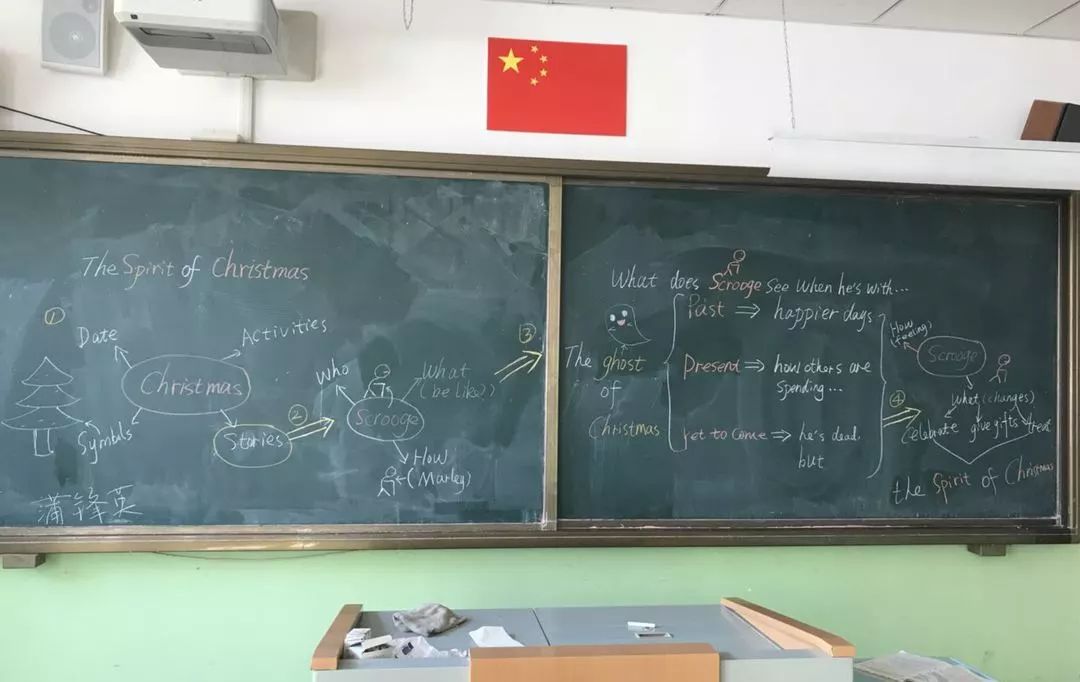 The Spirit of Christmas
①
Date
Activities
Christmas
Symbols
Stories
②
Who
What
(be like?)
Scrooge
How
(Marley)
蒲锋英
③
What does Scrooge see when he's with...
The ghost
of
Christmas
Past ⇒ happier days
Present ⇒ how others are
spending...
Yet to Come ⇒ he's dead,
but
④
How
(feeling)
Scrooge
What (changes)
celebrate give gifts treat
the Spirit of Christmas